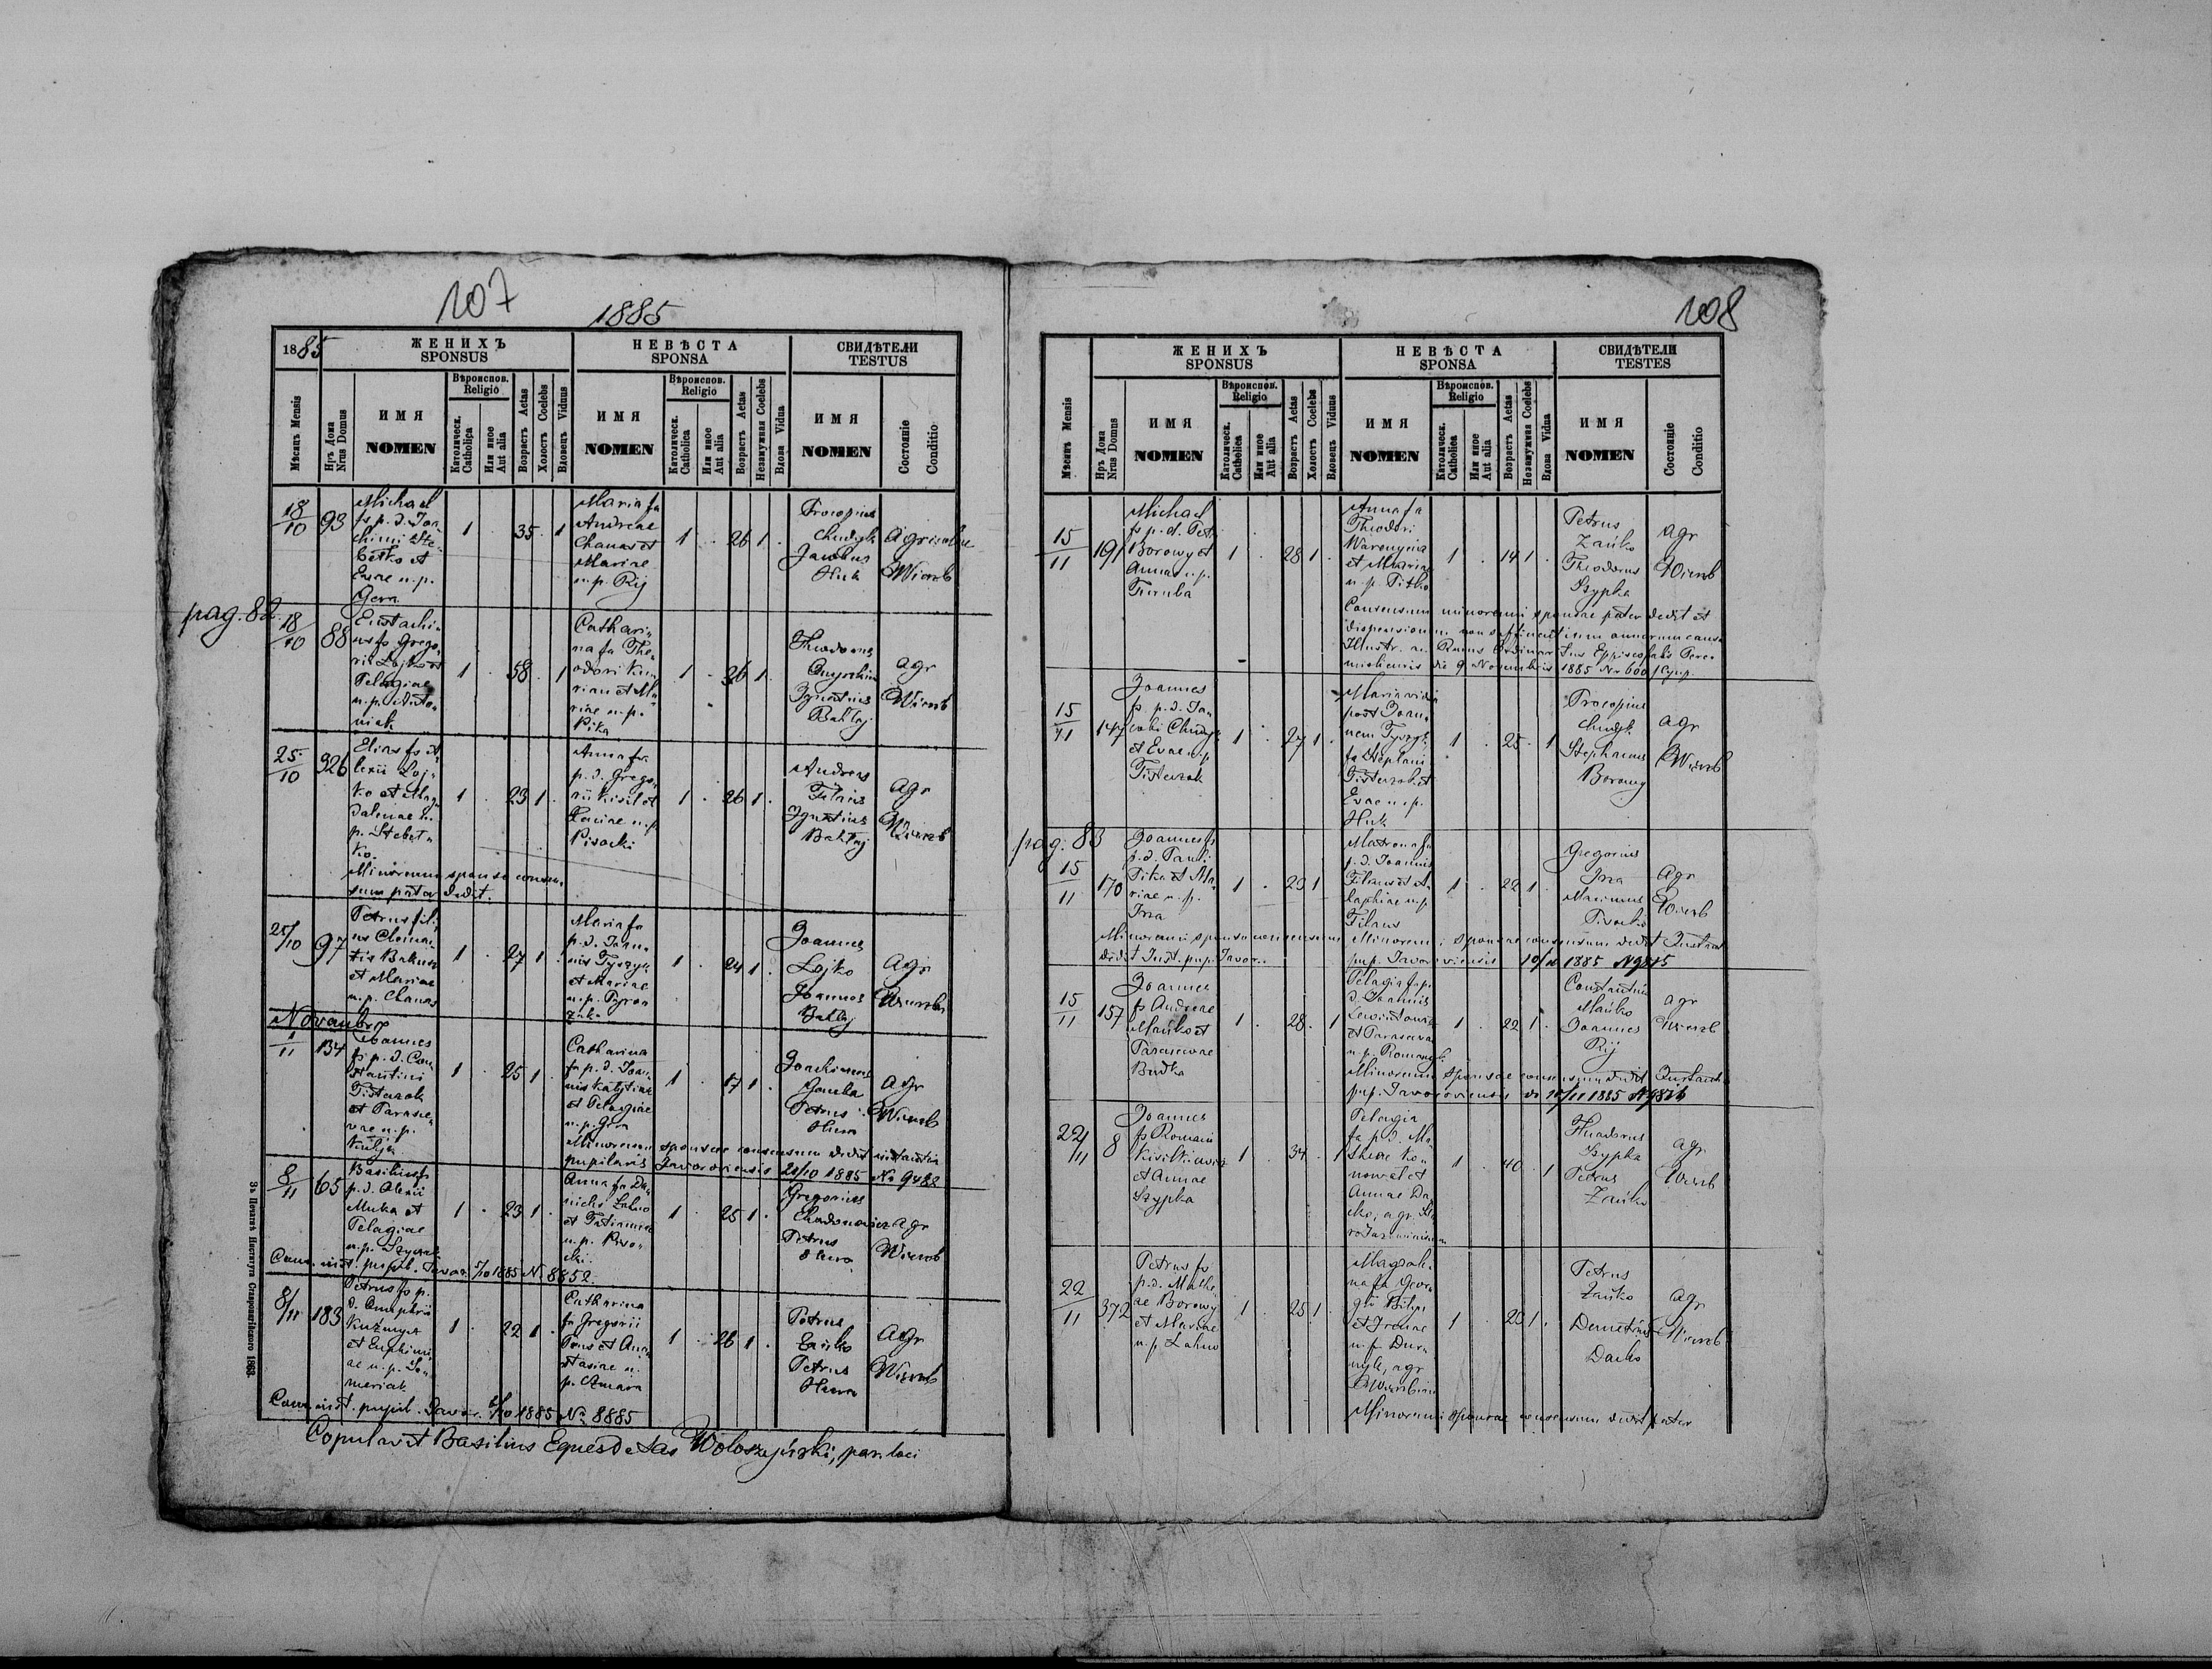 107
1885
1885
ЖЕНИХЪ
SPONSUS
НЕВѢСТА
SPONSA
СВИДѢТЕЛИ
TESTUS
Мѣсяцъ Mensis
Нръ Дома
Nrus Domus
ИМЯ
NOMEN
Вѣроиспов.
Religio
Католическ.
Catholica
Или иное
Aut alia
Возрастъ Aetas
Холостъ Coelebs
Вдовецъ Viduus
ИМЯ
NOMEN
Вѣроиспов.
Religio
Католическ.
Catholica
Или иное
Aut alia
Возрастъ Aetas
Незамужная Coelebs
Вдова Vidua
ИМЯ
NOMEN
Состояніе
Conditio
18/10
93
Michael
fs p. d. Joa
chimi Ste
betko et
Evae n. p.
Gera
1 . 35 . 1
Maria fa
Andreae
Chanas et
Mariae
n. p. Rij
1 . 26 1 .
Procopius
Chudyk
Jacobus
Huk
Agricolae
Wierzb
pag. 82
18/10
88
Eustachi
us fs Grego
rii Lojko et
Pelagiae
n. p. Anto
niak
1 . 58 . 1
Cathari
na fa The
odori Ku
rian et Ma
riae n. p.
Pika
1 . 36 1 .
Theodorus
Ignatius
Bahlaj
agr
Wierzb
25/10
326
Elias fs A
lexii Loj
ko et Mag
dalenae n.
p. Stebet
ko
1 . 23 1 .
Anna fa
p. d. Grego
rii Kisil et
Xeniae n. p.
Pisocki
1 . 26 1 .
Andreas
Filaus
Ignatius
Bahlaj
agr
Wierzb
Minorenni sponso consen
sum pater dedit.
25/10
97
Petrus fili
us Clemen
tis Bakun
et Mariae
n. p. Chanas
1 . 27 1 .
Maria fa
p. d. Joan
nis Tyszyk
et Mariae
n. p. Pyron
zak
1 . 24 1 .
Joannes
Lojko
Joannes
Bahlaj
agr
Wierzb
November
1/11
134
Joannes
fs p. d. Con
stantini
Fisterzok
et Parasce
vae n. p.
Kulyk
1 . 25 1 .
Catharina
fa p. d. Joan
nis Kalytiak
et Pelagiae
n. p. Gera
1 . 17 1 .
Joachimus
Gomba
Petrus
Hura
agr
Wierzb
Minorenni sponsae consensum dedit instantia
pupilaris Javoroviensis 21/10 1885 No 9482
8/11
65
Basilius fs
p. d. Alexii
Muka et
Pelagiae
n. p. Szymk
1 . 23 1 .
Anna fa Da
nielis Lahno
et Tatiannae
n. p. Piso
cki
1 . 25 1 .
Gregorius
Chodonowicz
Petrus
Hura
agr
Wierzb
Cons. inst. pupil. Javor. 5/10 1885 N. 8852
8/11
183
Petrus fs p.
d. Onuphrii
Kuzmyk
et Euphimi
ae n. p. Se
meriak
1 . 22 1 .
Catharina
fa Gregorii
Pans et Ana
stasiae n.
p. Czmara
1 . 26 1 .
Petrus
Zańko
Petrus
Hura
agr
Wierzb
Cons. inst. pupil. Javor. 5/10 1885 No 8885
Copulavit Basilius Eques de Sas Wołoszyński, par. loci
Зъ Печатнѣ Института Ставропигійского 1863.
108
ЖЕНИХЪ
SPONSUS
НЕВѢСТА
SPONSA
СВИДѢТЕЛИ
TESTES
Мѣсяцъ Mensis
Нръ Дома
Nrus Domus
ИМЯ
NOMEN
Вѣроиспов.
Religio
Католическ.
Catholica
Или иное
Aut alia
Возрастъ Aetas
Холостъ Coelebs
Вдовецъ Viduus
ИМЯ
NOMEN
Вѣроиспов.
Religio
Католическ.
Catholica
Или иное
Aut alia
Возрастъ Aetas
Незамужная Coelebs
Вдова Vidua
ИМЯ
NOMEN
Состояніе
Conditio
15/11
191
Michael
fs p. d. Petri
Borowy et
Annae n. p.
1 . 28 1 .
Anna fa
Theodori
Waronyna
et Mariae
n. p. Pitko
1 . 14 1 .
Petrus
Zańko
Theodorus
Szypka
agr
Wierzb
Consensum minorenni sponsae pater dedit et
dispensionem non sufficientium annorum causa
Illustr. ac Rmus Ordinariatus Episcopalis Pere
misliensis die 9 Novembris 1885 Nr 600
15/11
147
Joannes
fs p. d. Ja
cobi Chudyk
et Evae n. p.
Fisterzok
1 . 27 1 .
Maria vidua
post Joan
nem Tyszyk
fa Stephani
Fisterzok et
Evae n. p.
Huk
1 . 25 . 1
Procopius
Chudyk
Stephanus
Borowy
agr
Wierzb
pag. 83
15/11
170
Joannes fs
p. d. Pauli
Pika et Ma
riae n. p.
Inza
1 . 23 1
Matrona fa
p. d. Joannis
Filaus et A
laphiae n. p.
Filaus
1 . 22 1 .
Gregorius
Inza
Maximus
Pisocki
agr
Wierzb
Minorenni sponso consensum
dedit Inst. pup. Javor.
Minorenni sponsae consensum dedit Instant
pup. Javoroviensis 10/10 1885 N 9815
15/11
157
Joannes
fs Andreae
Mańko et
Parascevae
Budka
1 . 28 . 1
Pelagia fa p.
d. Joannis
Lewintowicz
et Parascevae
n. p. Romanyk
1 . 22 1 .
Constantinus
Mańko
Joannes
Rij
agr
Wierzb
Minorenni sponsae consensum dedit Instantia
pup. Javoroviensis do 10/11 1885 N 9816
22/11
8
Joannes
fs Romani
Kisilkiewicz
et Annae
Szypka
1 . 34 . 1
Pelagia
fa p. d. Ma
theae Ko
nowal et
Annae Da
cko, agr. Sta
1 . 40 . 1
Theodorus
Szypka
Petrus
Zańko
agr
Wierzb
22/11
372
Petrus fs
p. d. Mathe
ae Borowy
et Mariae
n. p. Lahno
1 . 25 1 .
Magdale
na fa Geor
gii Bilyi
et Irenae
n. p. Dur
nyk, agr
1 . 20 1 .
Petrus
Zańko
Demetrius
Dacko
agr
Wierzb
Minorenni sponsae consensum dedit pater